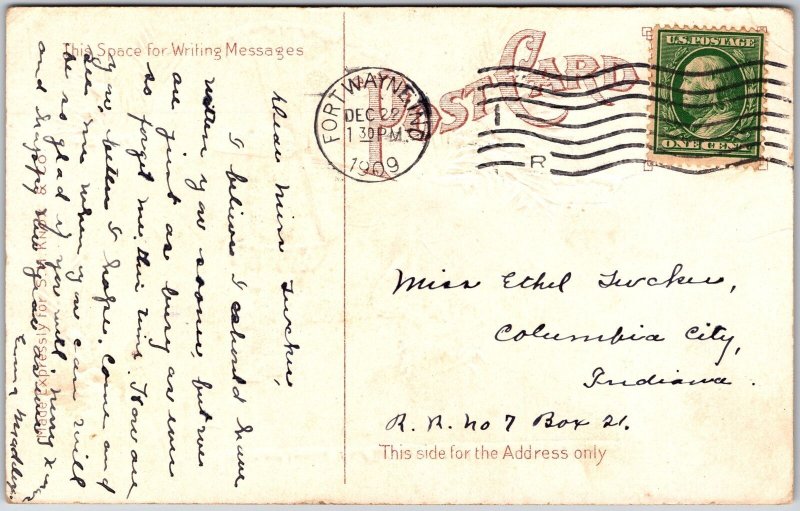 This Space for Writing Messages
Dear Miss Tucker,
I believe I should have
written you sooner, but we
are just as busy as ever
so forget me this time. How are
you, better I hope. Come and
see me when you can will
be so glad if you will. Merry Xmas
and happy
Emma
POST CARD
FORT WAYNE, IND.
DEC 22
1 30 PM
1909
1
R
U.S. POSTAGE
ONE CENT
Miss Ethel Tucker,
Columbia City,
Indiana.
R. R. No 7 Box 21.
This side for the Address only